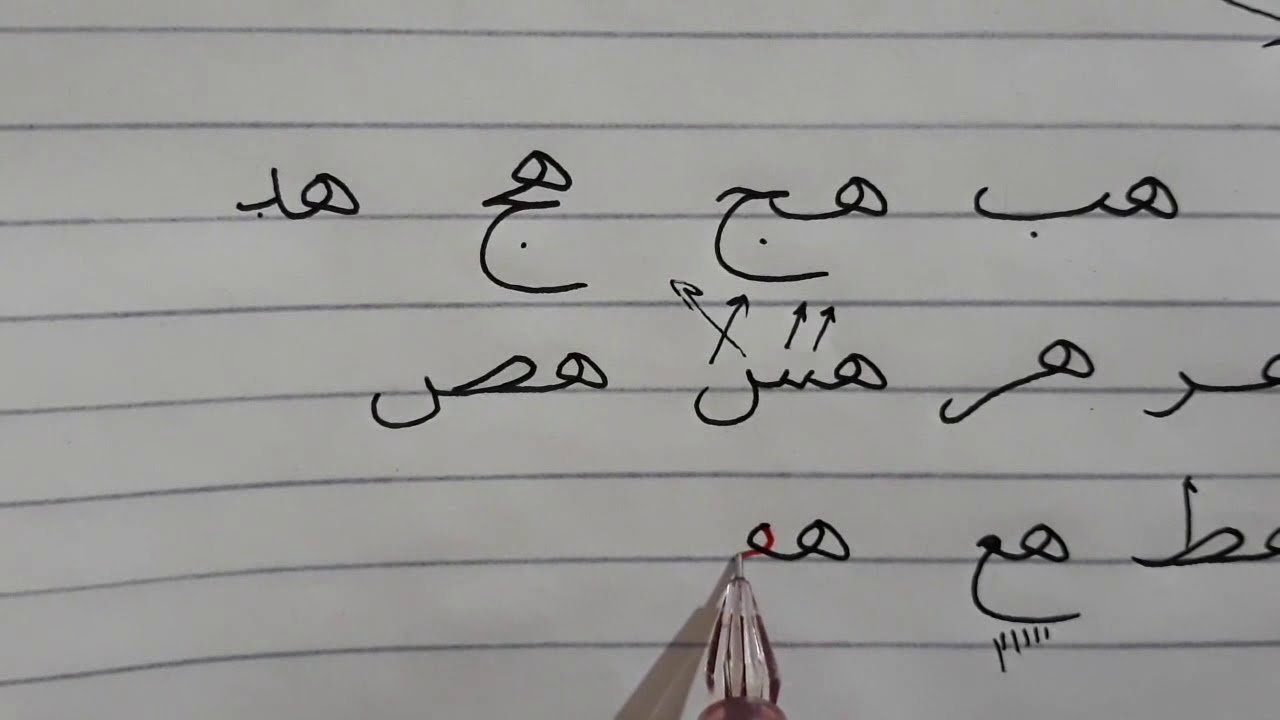 هب هج هج هد
هر هر هس هص
هط هع هه